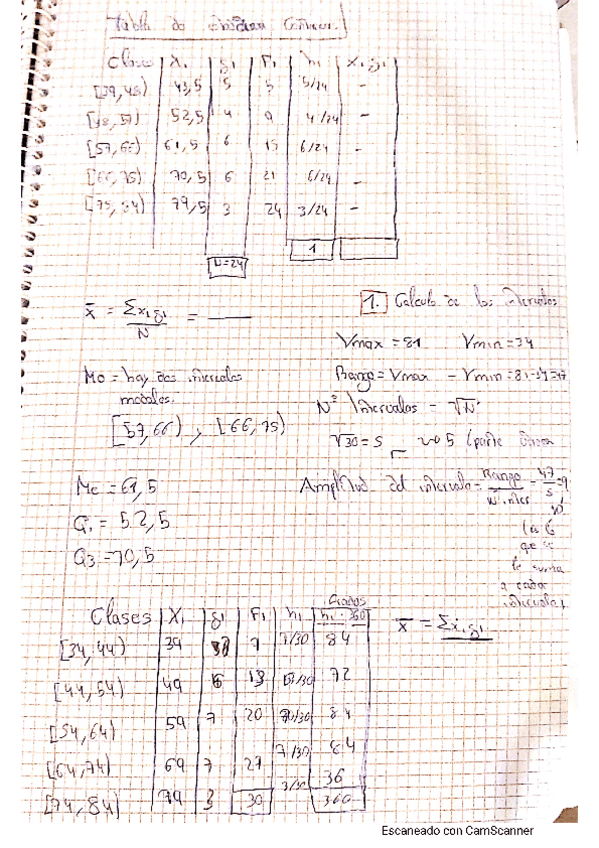 Tabla de
Clases | Xi | fi | Fi | hi | xi·fi
[39,48) 43,5 5 5 5/24 -
[48,57) 52,5 4 9 4/24 -
[57,66) 61,5 6 15 6/24 -
[66,75) 70,5 6 21 6/24 -
[75,84) 79,5 3 24 3/24 -
N=24 1
x̄ = Σxi·fi / N = ——
Mo = hay dos intervalos
modales.
[57,66) , [66,75)
Me = 61,5
Q1 = 52,5
Q3 = 70,5
1. Calculo de los intervalos
Vmax = 81 Vmin = 34
Rango = Vmax - Vmin = 81-34=47
Nº Intervalos = √N
√30 = 5 5 (parte
Amplitud del intervalo = Rango / Nº inter = 47/5 = 9
10
que se
le suma
a cada
intervalo
Grados
Clases | Xi | fi | Fi | hi | hi·360
[34,44) 39 7 7/30 84
[44,54) 49 6 13 72
[54,64) 59 7 20 84
[64,74) 69 7 27 7/30 84
[74,84) 79 3 30 3/30 36
360
x̄ = Σxi·fi
Escaneado con CamScanner